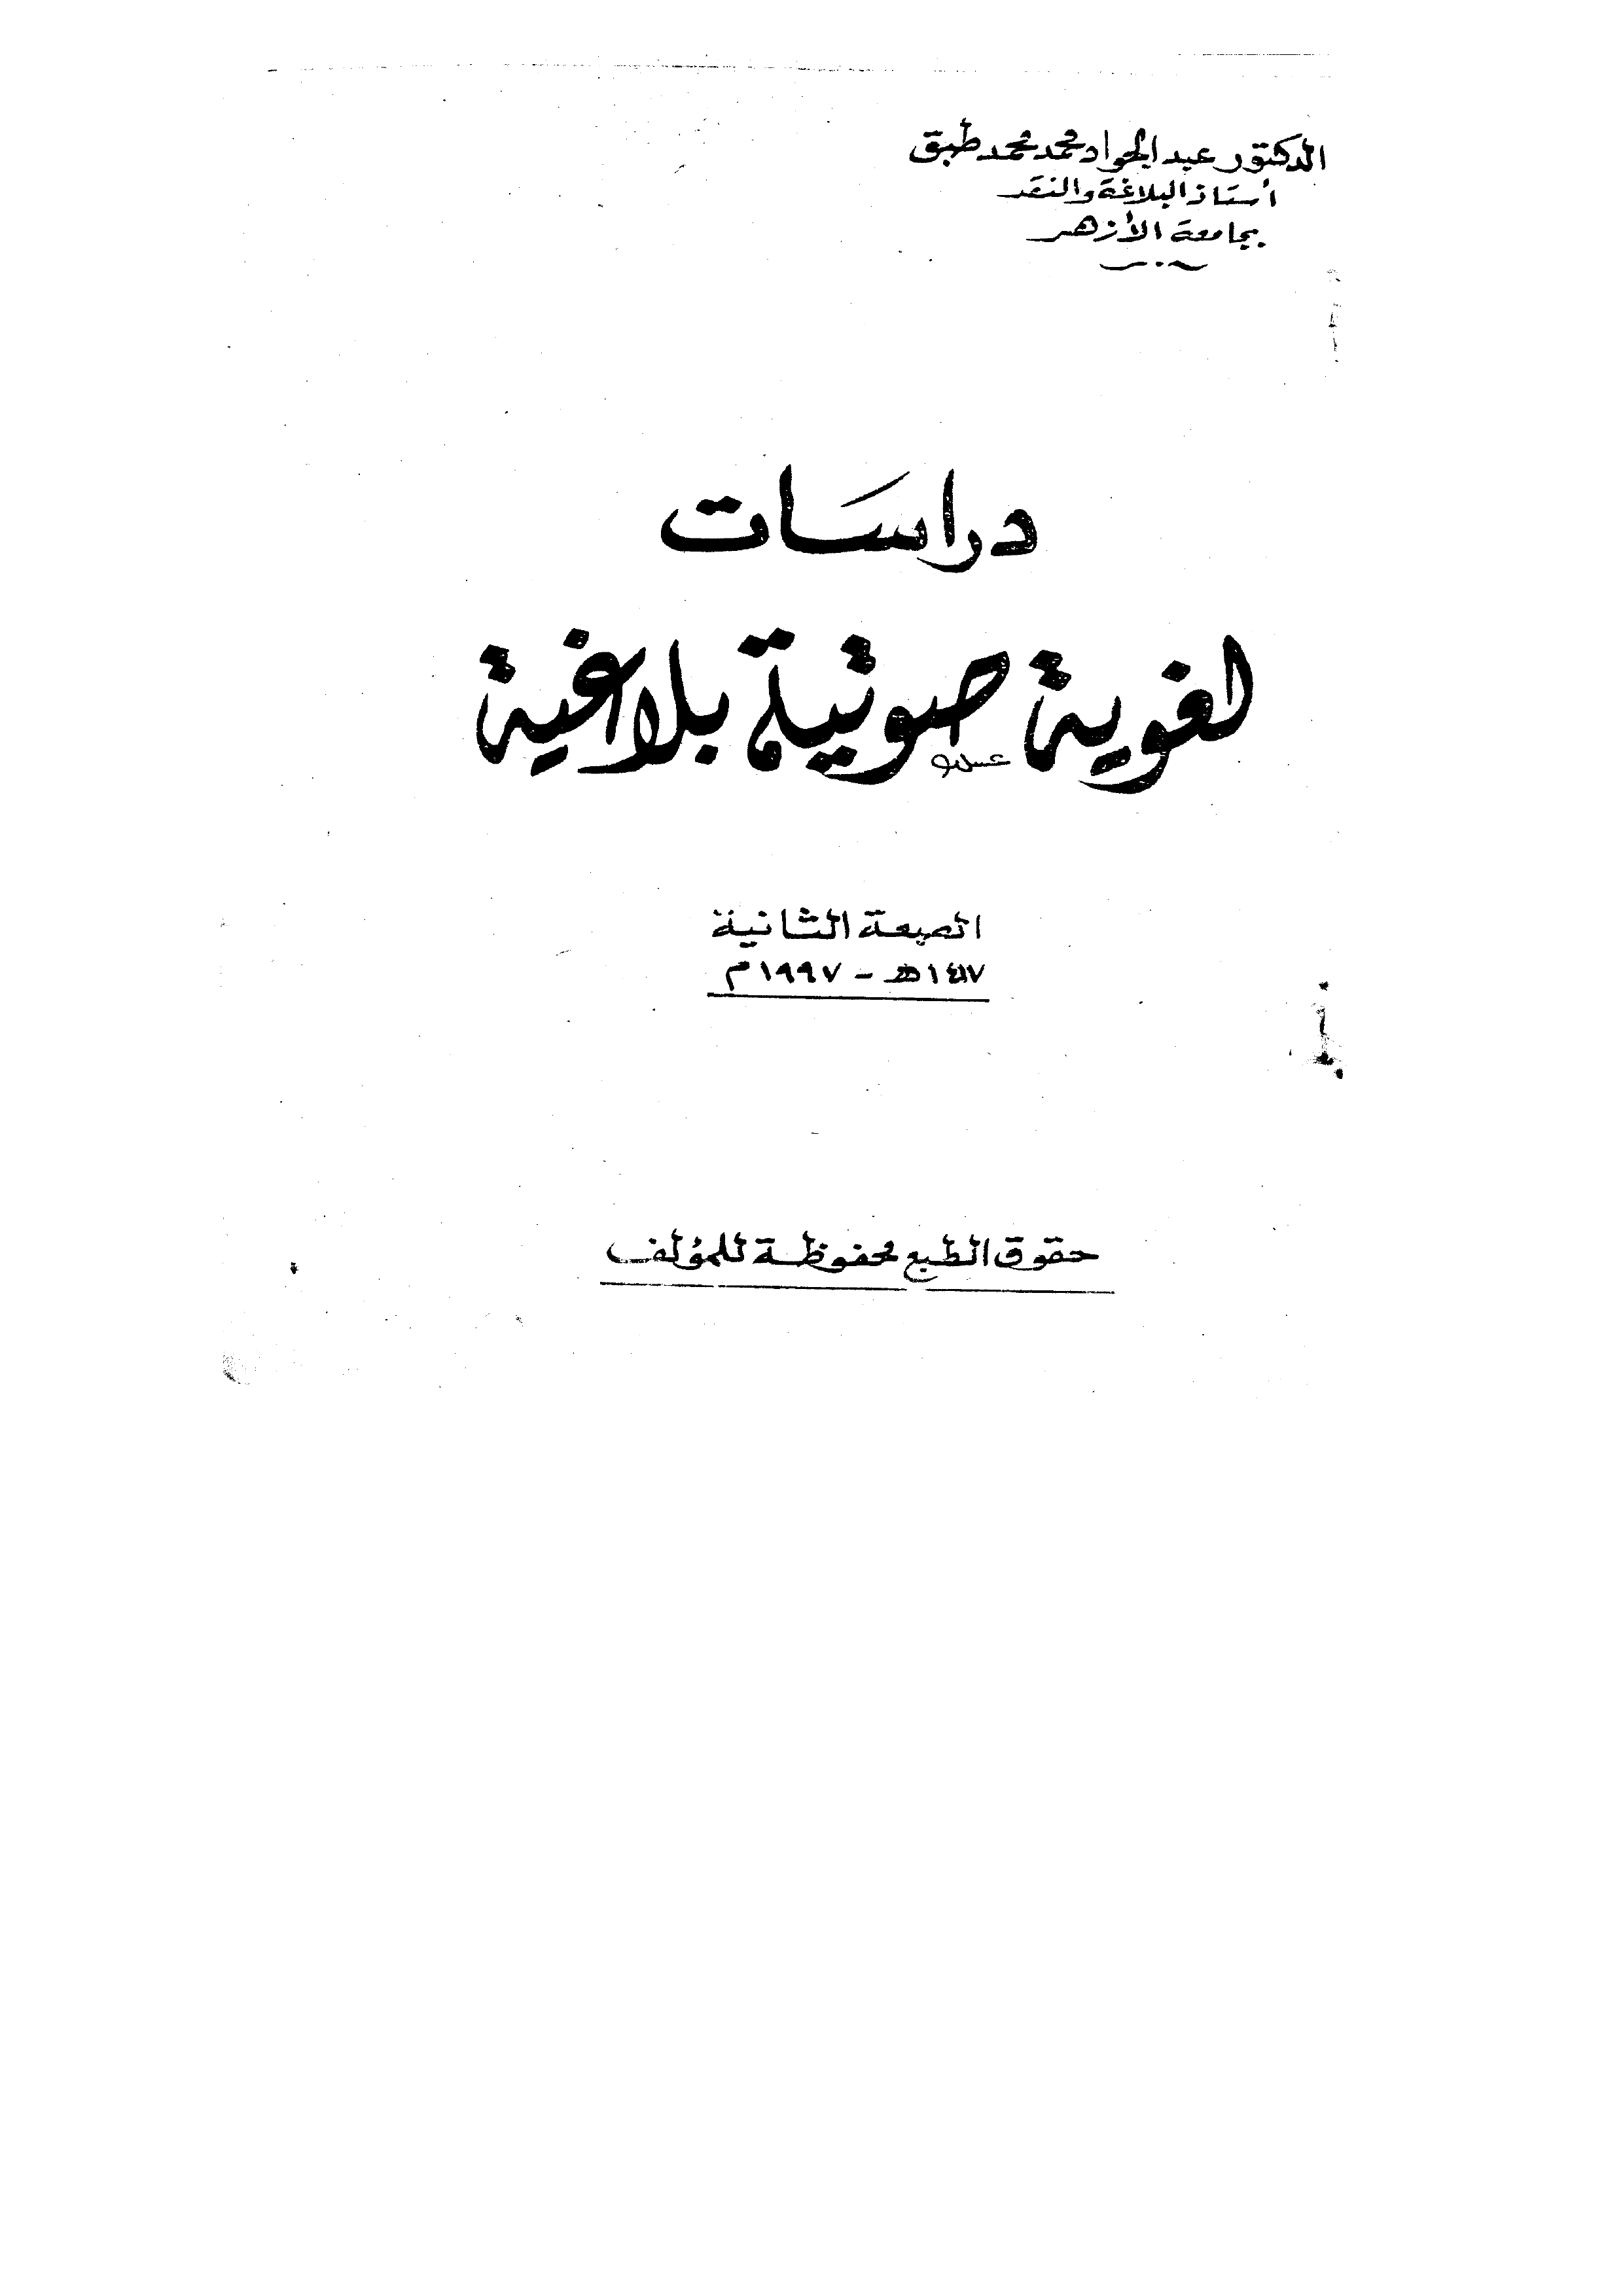 الدكتور عبد الجواد محمد محمد طبق
أستاذ البلاغة والنقد
بجامعة الأزهر
دراسات
لغوية صوتية بلاغية
الطبعة الثانية
١٤١٧هـ - ١٩٩٧م
حقوق الطبع محفوظة للمؤلف